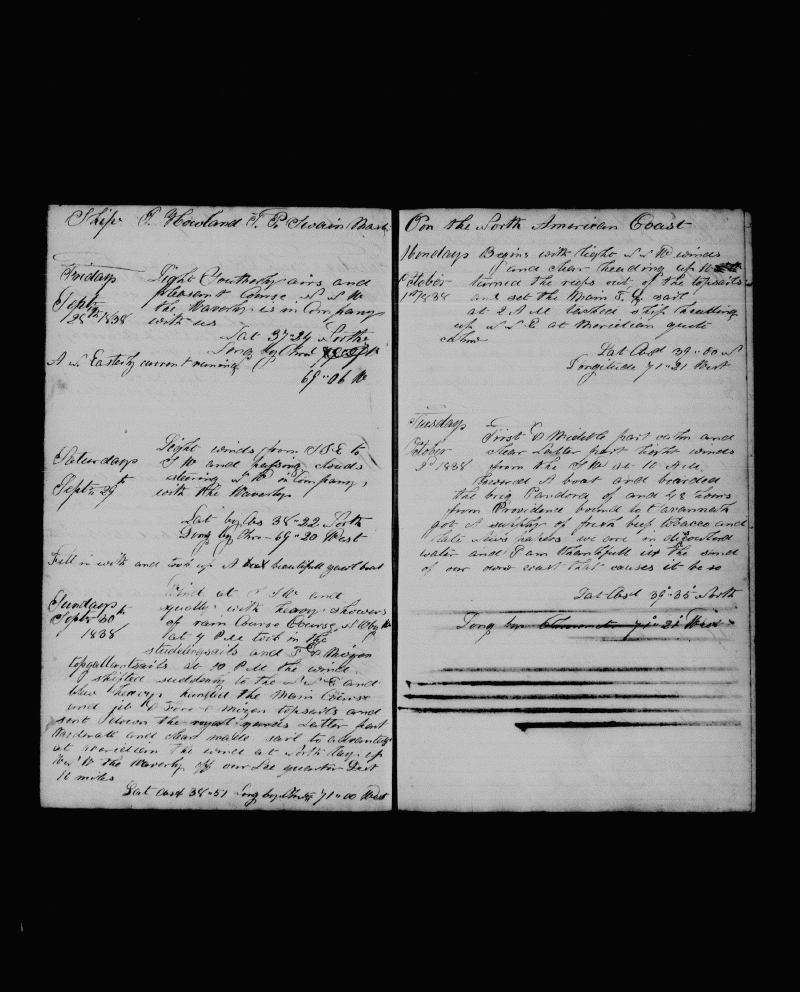 Ship G. Howland G. P. Swain Mast
Friday Light Southerly airs and
pleasant Course N N W
Sept the Waverly is in Company
28th 1838 with us
Lat 37"24 North
Long by Chro
A N Easterly current running
69"06 W
Light winds from S S E to
Saturday S W and passing clouds
steering N W in Company
Sept 29th with the Waverly
Lat by Obs 38"22 North
Long by Chro 69"20 West
Fell in with and took up A beautifull yawl boat
Wind at S S W and
Sunday squally with heavy showers
Sept 30th of rain Course Course N W by W
1838 at 4 P M took in the
studdingsails and F & Mizen
topgallantsails at 10 P M the wind
shifted suddenly to the N N E and
blew heavy handed the Main Course
and jib & Fore & mizen topsails and
sent down the royal yards Latter part
Moderate and clear made sail to advantage
at Meridian the wind at North Lay up
the Waverly off our Lee quarter Dist
10 miles
Lat Obsd 38"51 Long by Chro 71"00 West
On the North American Coast
Monday Begins with light N N W winds
and clear heading up W
October turned the reefs out of the topsails
1st 1838 and set the Main T. G. sail
at 2 A M tacked ship heading
up N N E at Meridian quite
calm
Lat Obsd 39"00 N
Longitude 71"21 West
Tuesday First & Middle part calm and
October clear Latter part light winds
2d 1838 from the S W at 10 A M
lowered A boat and boarded
the brig Pandora of and 48 hours
from Providence bound to Savannah
got A supply of fresh beef, tobacco and
late News papers we are in discolored
water and I am thankfull it is the sand
of our own coast that causes it be so
Lat Obsd 39"35 North
Long by Chronometer 71"21 West